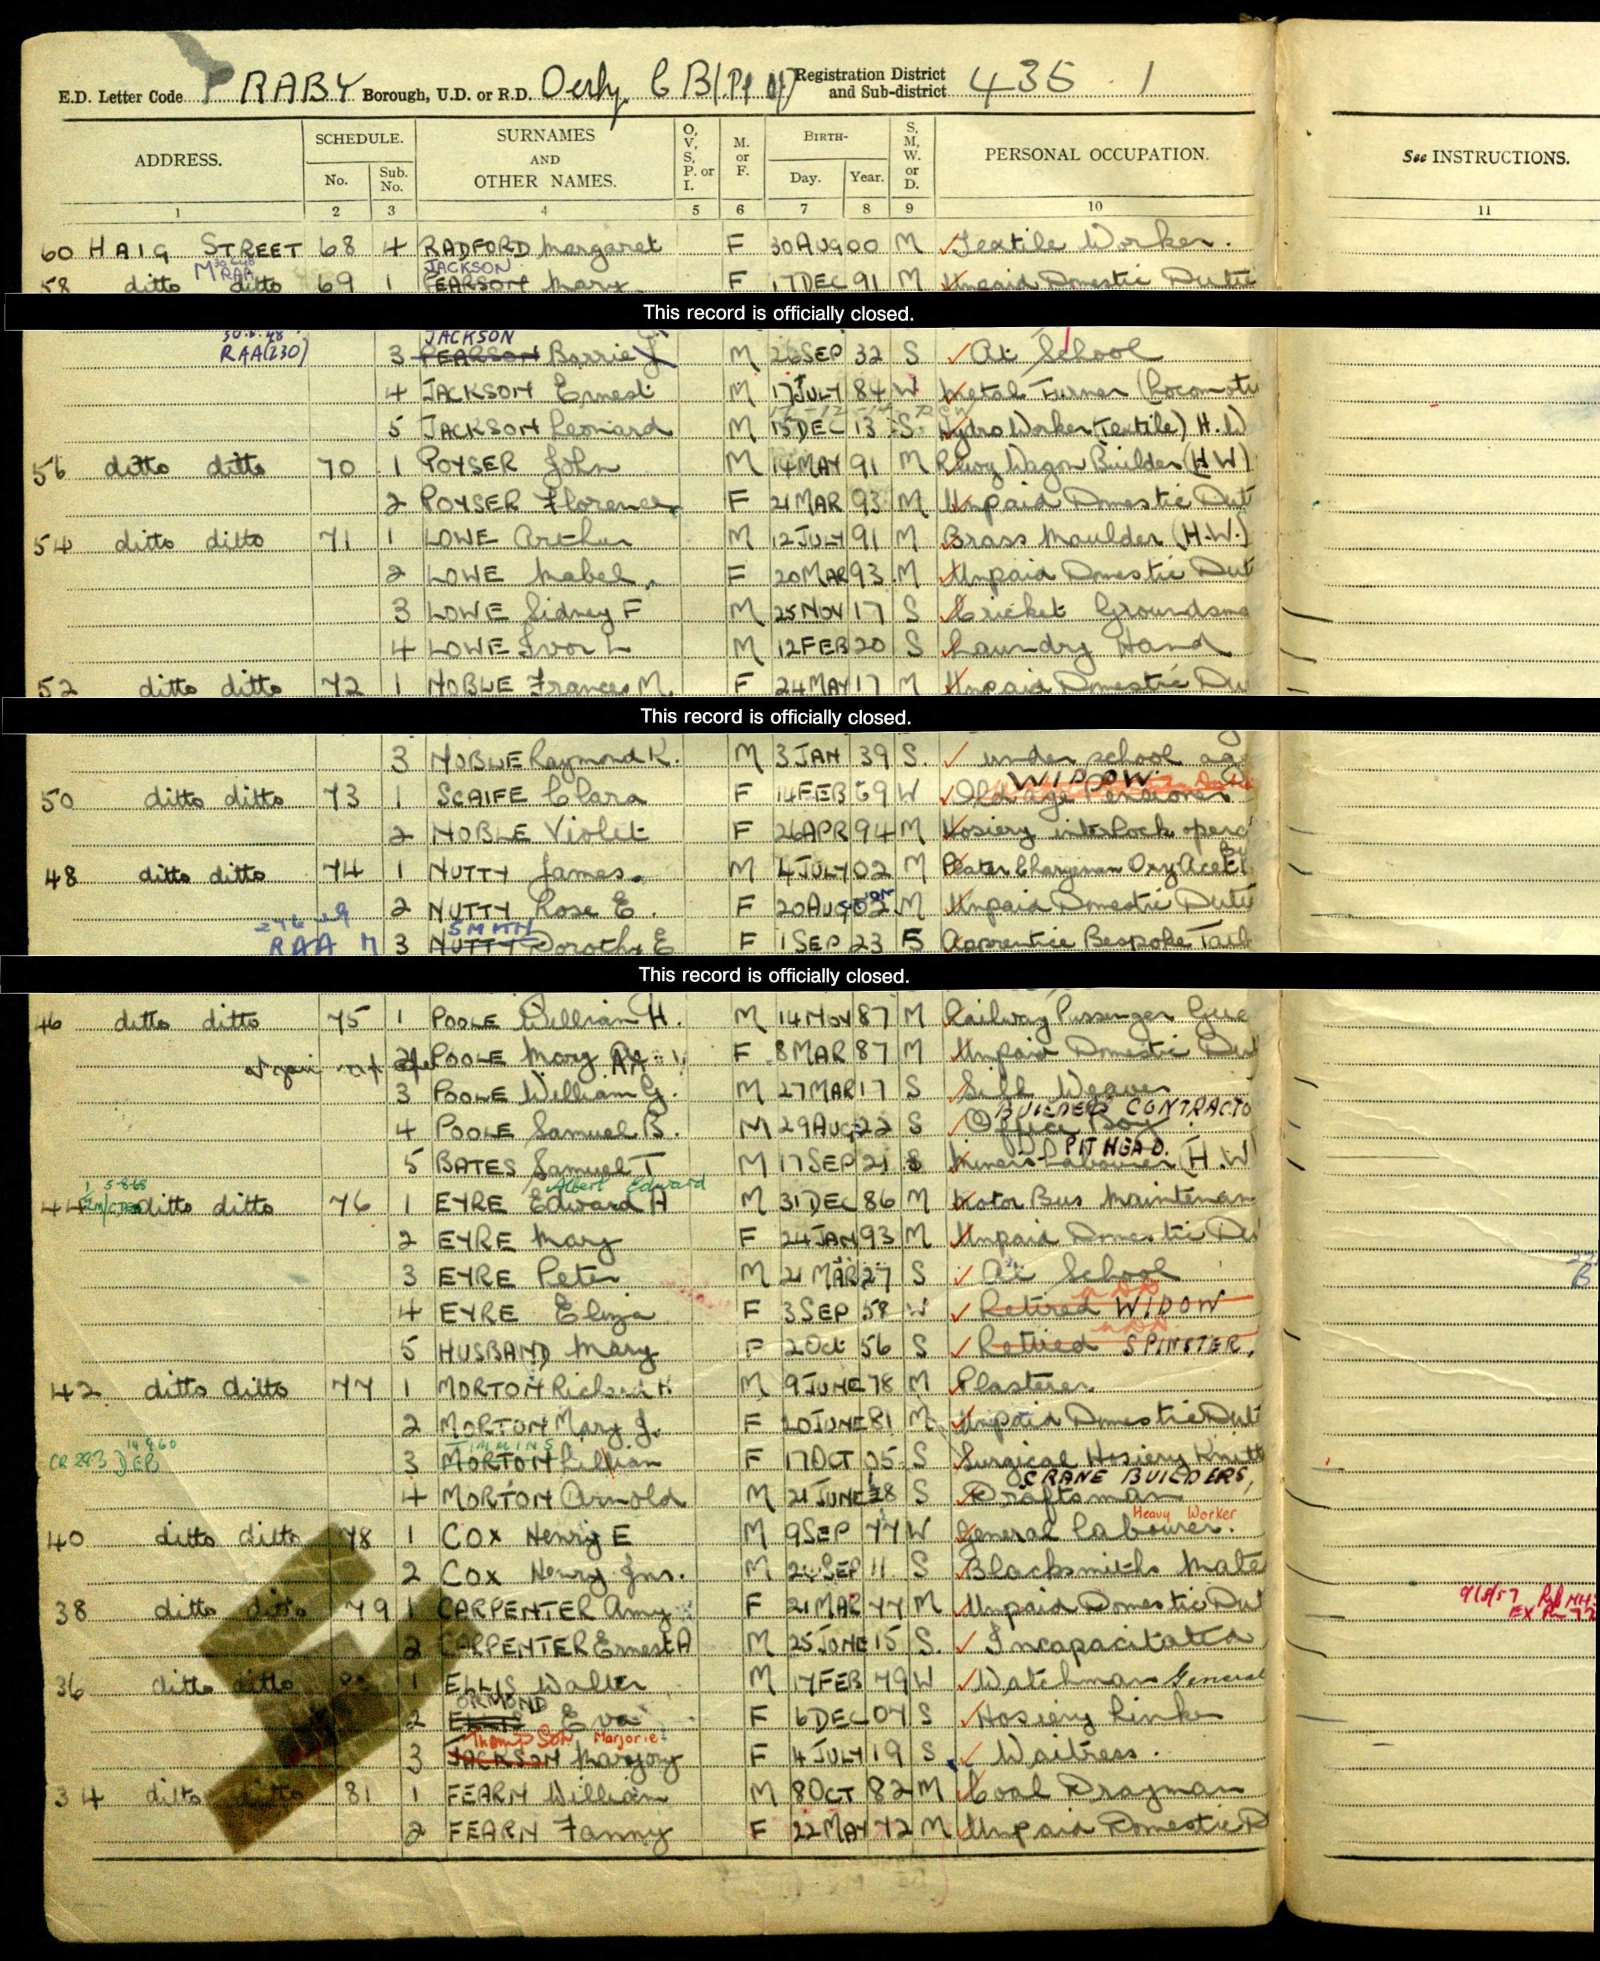 E.D. Letter Code RABY Borough, U.D. or R.D. Derby C B (Pt of) Registration District and Sub-district 435 1
ADDRESS. SCHEDULE. No. Sub. No. SURNAMES AND OTHER NAMES. O, V, S, P. or I. M. or F. BIRTH- Day. Year. S, M, W. or D. PERSONAL OCCUPATION. See INSTRUCTIONS.
1 2 3 4 5 6 7 8 9 10 11
60 HAIG STREET 68 4 RADFORD Margaret F 30 AUG 00 M Textile Worker.
JACKSON
58 ditto ditto 69 1 PEARSON Mary F 17 DEC 91 M Unpaid Domestic Dutie
This record is officially closed.
JACKSON
RAA(230) 3 PEARSON Barrie J M 26 SEP 32 S At School
4 JACKSON Ernest M 17 JULY 84 W Metal Turner (Locomotiv
5 JACKSON Leonard M 15 DEC 13 S Hydro Worker (Textile) H.W
56 ditto ditto 70 1 POYSER John M 14 MAY 91 M Rlwy Wagon Builder (H W)
2 POYSER Florence F 21 MAR 93 M Unpaid Domestic Dut
54 ditto ditto 71 1 LOWE Arthur M 12 JULY 91 M Brass Moulder (H.W.)
2 LOWE Mabel F 20 MAR 93 M Unpaid Domestic Dut
3 LOWE Sidney F M 25 NOV 17 S Cricket Groundsma
4 LOWE Ivor L M 12 FEB 20 S Laundry Hand
52 ditto ditto 72 1 NOBLE Frances M. F 24 MAY 17 M Unpaid Domestic Du
This record is officially closed.
3 NOBLE Raymond K. M 3 JAN 39 S. under school ag
WIDOW
50 ditto ditto 73 1 SCAIFE Clara F 14 FEB 69 W Old age Pensioner
2 NOBLE Violet F 26 APR 94 M Hosiery interlock opera
48 ditto ditto 74 1 NUTTY James. M 4 JULY 02 M
2 NUTTY Rose E. F 20 AUG 02 M Unpaid Domestic Duti
SMITH
RAA M 3 NUTTY Dorothy E F 1 SEP 23 S Apprentice Bespoke Tail
This record is officially closed.
46 ditto ditto 75 1 POOLE William H. M 14 NOV 87 M Railway Passenger Gua
2 POOLE Mary F 8 MAR 87 M Unpaid Domestic Dut
3 POOLE William G. M 27 MAR 17 S Silk Weaver
BUILDERS CONTRACTO
4 POOLE Samuel B. M 29 AUG 22 S Office Boy
PIT HEAD.
5 BATES Samuel T M 17 SEP 21 S Miners Labourer (H.W
Albert Edward
44 ditto ditto 76 1 EYRE Edward A M 31 DEC 86 M Motor Bus Maintenan
2 EYRE Mary F 24 JAN 93 M Unpaid Domestic Du
3 EYRE Peter M 21 MAR 27 S At School
4 EYRE Eliza F 3 SEP 58 W Retired WIDOW
5 HUSBAND Mary F 2 Oct 56 S Retired SPINSTER.
42 ditto ditto 77 1 MORTON Richard H M 9 JUNE 78 M Plasterer
2 MORTON Mary J. F 20 JUNE 81 M Unpaid Domestic Dut
TIMMINS
CR 283 DEB 3 MORTON Lillian F 17 OCT 05 S Surgical Hosiery Knitt
CRANE BUILDERS,
4 MORTON Arnold M 21 JUNE 18 S Draftsman
Heavy Worker
40 ditto ditto 78 1 COX Henry E M 9 SEP 77 W General Labourer.
2 COX Henry Jnr. M 24 SEP 11 S Blacksmiths Mate
38 ditto ditto 79 1 CARPENTER Amy F 21 MAR 77 M Unpaid Domestic Dut
2 CARPENTER Ernest A M 25 JUNE 15 S. Incapacitated
36 ditto ditto 1 ELLIS Walter M 17 FEB 79 W Watchman General
ORMOND
2 ELLIS Eva F 6 DEC 07 S Hosiery Linker
Thompson Marjorie
3 JACKSON Marjory F 4 JULY 19 S Waitress.
34 ditto ditto 81 1 FEARN William M 8 OCT 82 M Coal Drayman
2 FEARN Fanny F 22 MAY 72 M Unpaid Domestic D